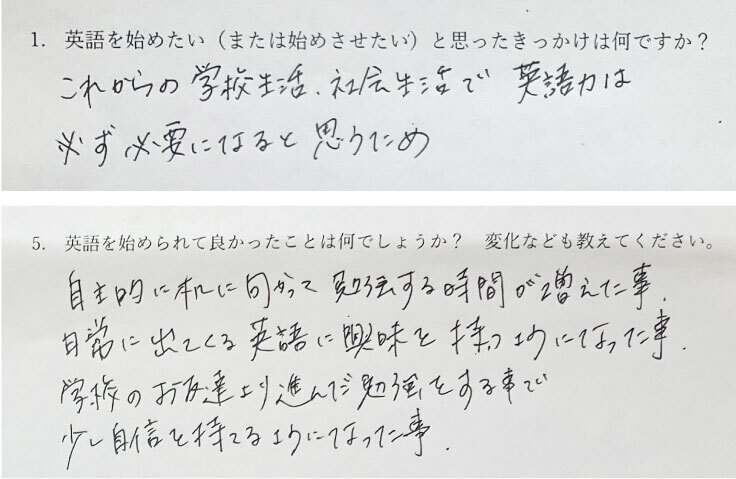 1. 英語を始めたい（または始めさせたい）と思ったきっかけは何ですか？
これからの学校生活、社会生活で 英語力は
必ず必要になると思うため
5. 英語を始められて良かったことは何でしょうか？ 変化なども教えてください。
自主的に机に向かって勉強する時間が増えた事.
日常に出てくる英語に興味を持つようになった事.
学校のお友達より進んだ勉強をする事で
少し自信を持てるようになった事.